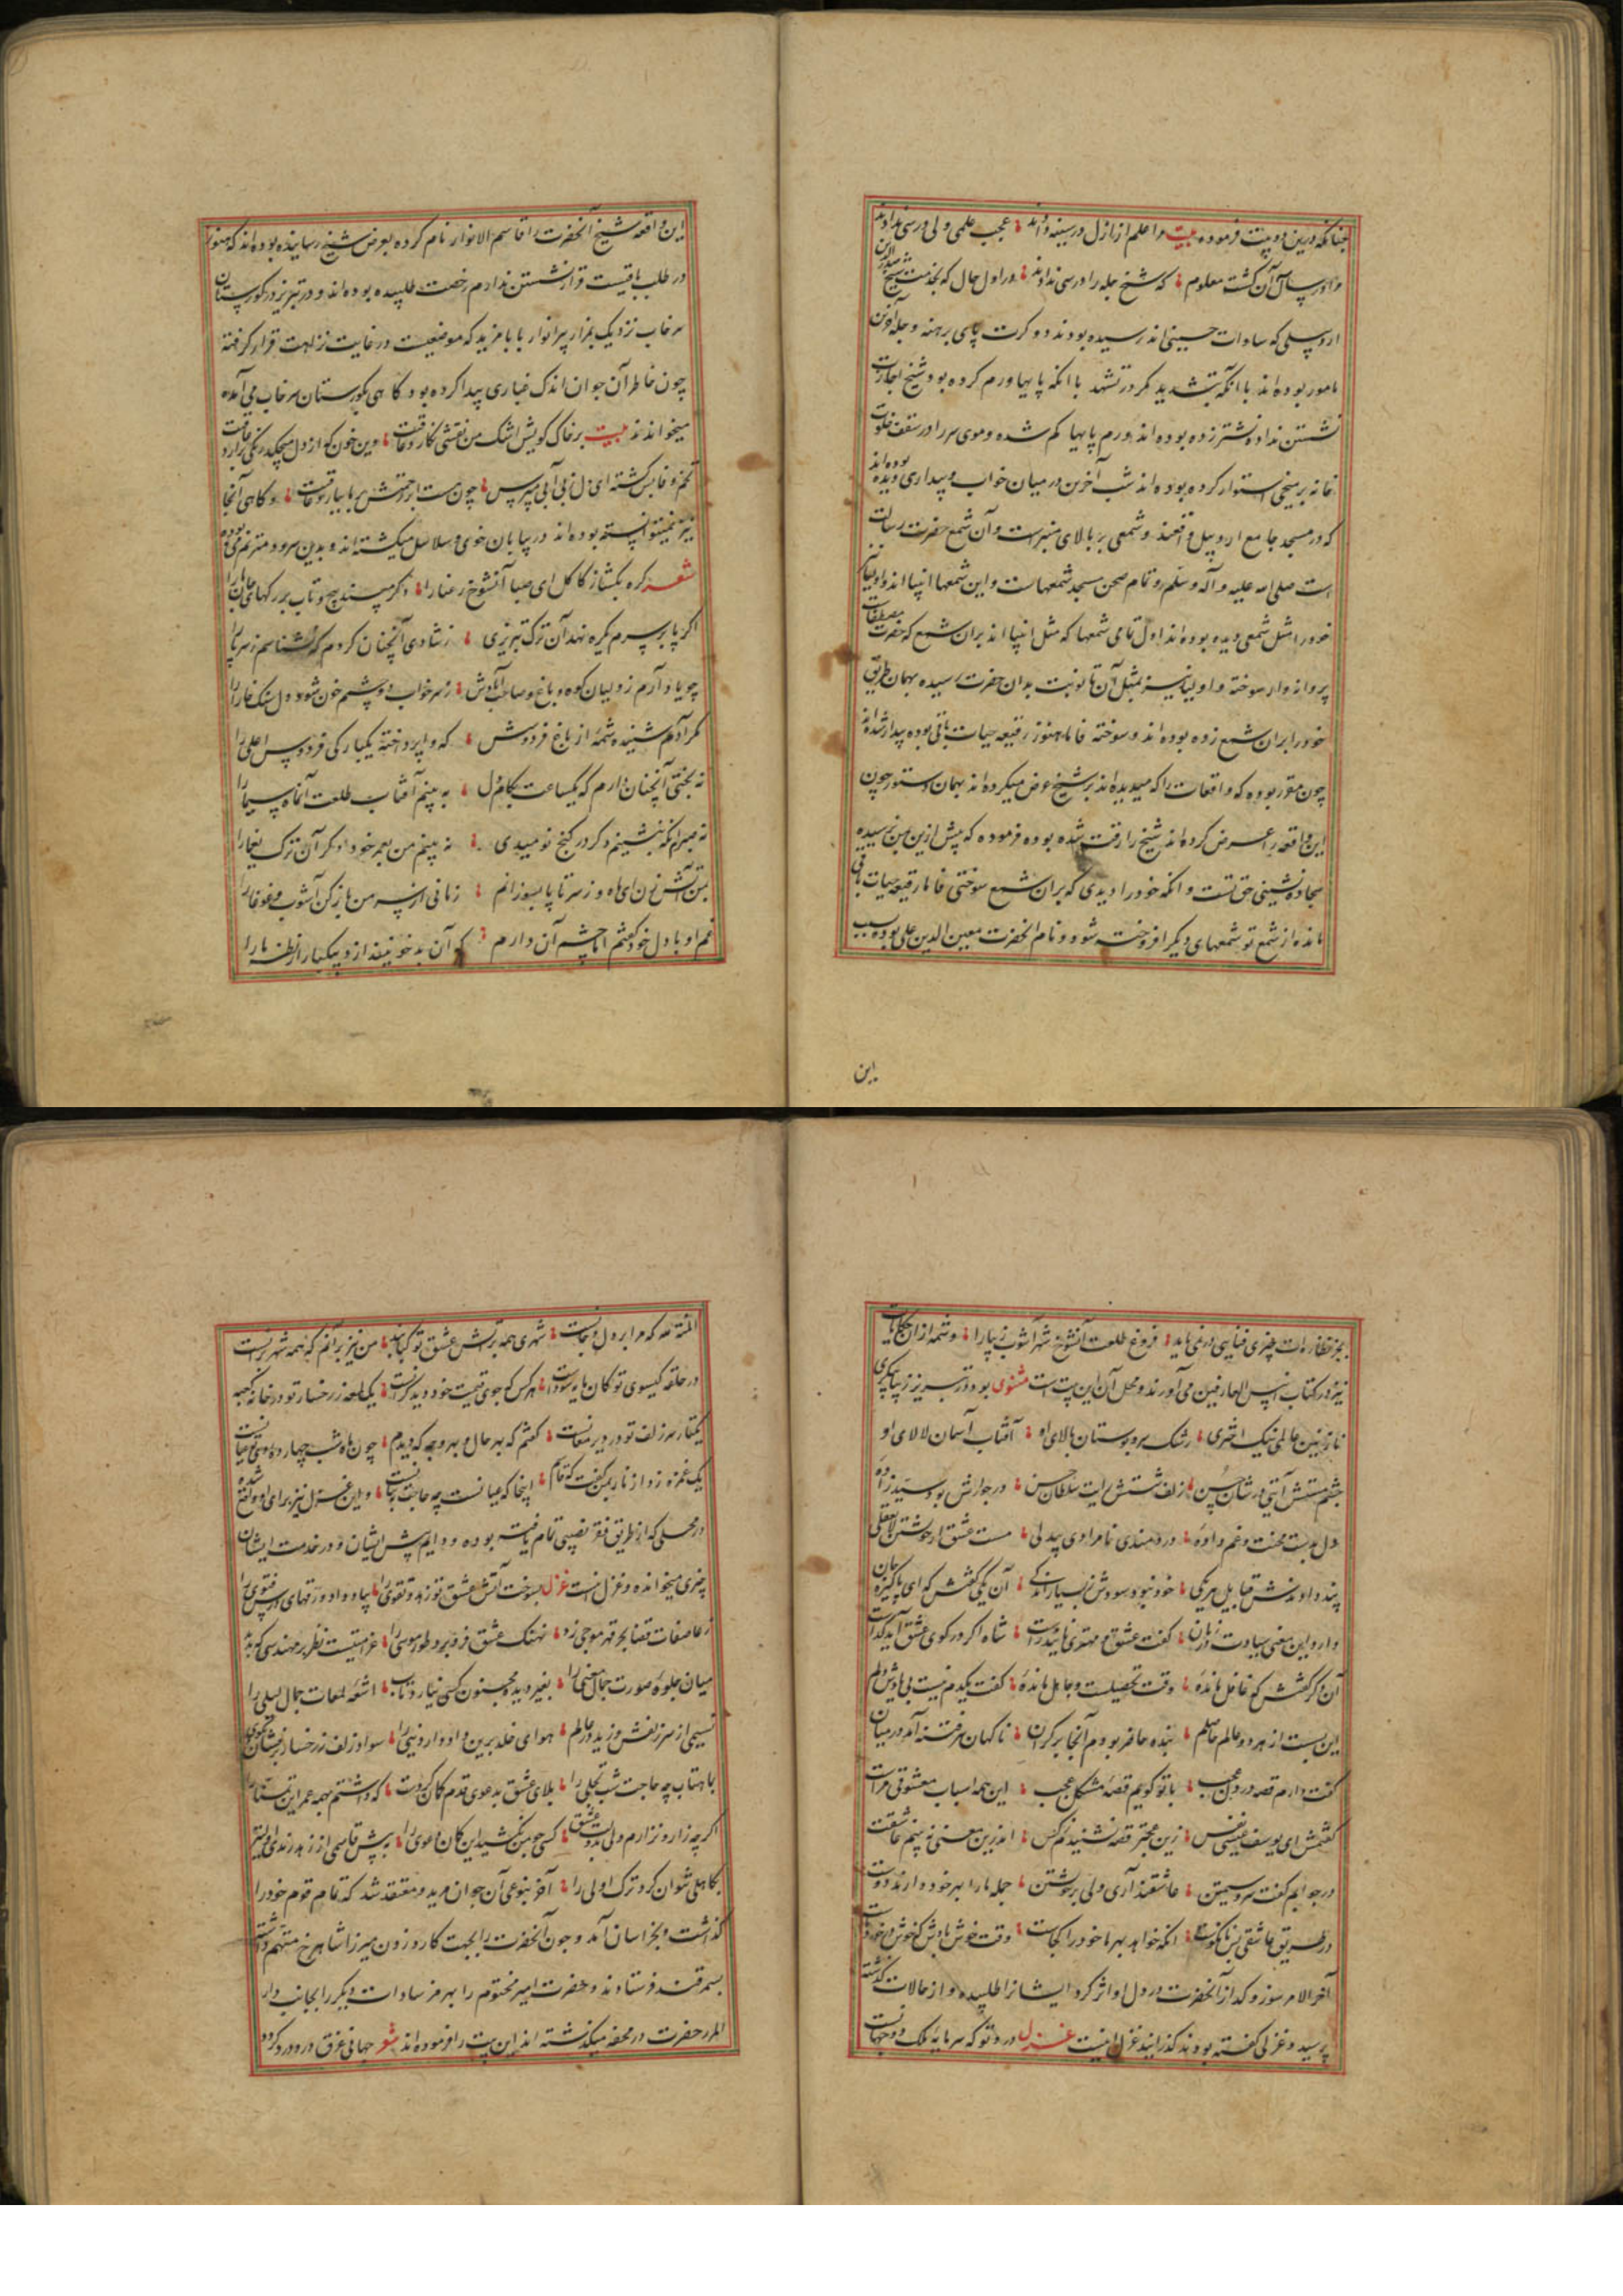 چنانکه درین دو بیت فرموده بیت مرا علم از ازل در سینه دادند عجب علمی ولی درسی ندادند
مرا در سالی آن گشت معلوم که شیخ چله را درسی ندادند در اول حال که بخدمت شیخ صدرالدین
اردبیلی که سادات حسینی اند رسیده بودند دو کرت پای برهنه و چله آخرین
مامور بوده اند با آنکه بتشدید مگر در تشهد با آنکه پایها ورم کرده بود و شیخ اجازت
نشستن نداده نشتر زده بوده اند ورم پایها کم شده و موی سر را در سقف خلوت
خانه بر میخی استوار کرده بوده اند شب آخرین در میان خواب و بیداری دیده بوده اند
که در مسجد جامع اردبیل واقعند و شمعی بر بالای منبرست و آن شمع حضرت رسالت
است صلی الله علیه و آله و سلم و تمام صحن مسجد شمعهاست و این شمعها انبیا اند و اولیا
خود را مثل شمعی دیده بوده اند اول تمامی شمعها که مثل انبیا اند بران شمع که حضرت مصطفاست
پروانه وار سوخته و اولیا نیز بمثل آن تا نوبت بدان حضرت رسیده بهمان طریق
خود را بران شمع زده بوده اند و سوخته فاما هنوز رقیعه حیات باقی بوده بیدار شده اند
چون مقرر بوده که واقعات را که میدیده اند بر شیخ عرض میکرده اند بهمان دستور چون
این واقعه را عرض کرده اند شیخ را رقت شده بوده فرموده که پیش ازین بمن رسیده
سجاده نشینی حق تست و آنکه خود را دیدی که بران شمع سوختی فاما رقیعه حیات باقی
مانده از شمع تو شمعهای دیگر افروخته شود و نام آنحضرت معین الدین علی بوده بسبب
این
این واقعه شیخ آنحضرت را قاسم الانوار نام کرده بعرض شیخ رسانیده بوده اند که هنوز
در طلب باقیست قرار نشستن ندارم رخصت طلبیده بوده اند و در تبریز در گورستان
سرخاب نزدیک بمزار پرانوار بابا مزید که موضعیست در غایت نزاهت قرار گرفته
چون خاطر آن جوان اندک غباری پیدا کرده بود گاهی بگورستان سرخاب می آمده
میخوانده اند بیت بر خاک کویش اشک من نقشی نگار و عاقبت وین خون که از دل میچکد رنگی برآرد عاقبت
تخم وفایش کشته ای دل از بی آبی مپرس چون هست ابر رحمتش بر ما ببارد عاقبت و گاهی آنجا
نیز نمیتوانسته بوده اند در بیابان خوی و سلاسل میگشته اند و بدین سرود مترنم می بوده
شعر گره بگشا ز کاکل ای صبا آن شوخ رعنا را دگر مپسند پیچ و تاب بر رگهای جان ما را
اگر پا بر سرم یکره نهد آن ترک تبریزی ز شادی آنچنان گردم که نشناسم ز سر پا را
چو یاد آرم ز ولیان کوه و باغ و صاحب آبادش ز سرخاب دو چشمم خون شود دل سنگ خارا را
مگر آدم شنیده شمه از باغ فردوسش که واپرداخته یکبارگی فردوس اعلی را
نه بختی آنچنان دارم که یکساعت بکام دل به بینم آفتاب طلعت آن ماه سیما را
نه صبرم آنکه بنشینم دگر در کنج نومیدی نه بینم من بعمر خود دگر آن ترک یغما را
بتن آتش زن ای ماه و ز سر تا پا بسوزانم زمانی از سر من باز کن آشوب و غوغا را
غم او با دل خود گفتم اما چشم آن دارم که آن بدخو نیندازد بیکبار از نظر ما را
بجز نظاره ات چیزی قناسی در نمی یابد فروغ طلعت آن شوخ شهرآشوب زیبا را و تتمه ازان حکایات
نیز در کتاب انیس العارفین می آورند و محل آن این بیت است مثنوی بود در تبریز زیبا پیکری
نازنین عالمی نیک اختری رشک سرو بوستان بالای او آفتاب آسمان لالای او
چشم مستش آیتی در شان حسن زلف شستش رایت سلطان حسن در جوارش بود سید زاده
دل بدست محنت و غم داده دردمندی نامرادی بیدلی مست عشق از خویشتن لایعقلی
پند دادندش قبایل هر یکی خود نبود سودش ز بسیار اندکی آن یکی گفتش که ای پاکیزه جان
دارد این معنی سیادت را زیان گفت عشق و مهتری ناید راست شاه اگر در کوی عشق آید گداست
آن دگر گفتش که غافل مانده وقت تحصیلست و جاهل مانده گفت یکدم نیست بی یادش دلم
این بست از هر دو عالم حاصلم بنده حاضر بودم آنجا بر کران ناگهان سرفتنه آمد در میان
گفت دارم قصه در دل عجب با تو گویم قصه مشکل عجب این همه اسباب معشوقی مراست
گفتمش ای یوسف عیسی نفس زین عجبتر قصه نشنیدم ز کس اندرین معنی نه بینم عاشقت
در جوابم گفت سرو سیمتن عاشقند آری ولی بر خویشتن جمله ما را بهر خود دارند دوست
در طریق عاشقی بس نانکوست آنکه خواهد بهر ما خود را کجاست وقت خوش بادش که خوش در خورد ماست
آخر الامر سوز و گداز آنحضرت در دل او اثر کرد ایشانرا طلبیده و از حالات گذشته
پرسید و غزلی گفته بودند گذرانیدند غزل اینست غزل درد تو که سرمایه ملک دو جهانست
المنة لله که مرا بر دل و جانست شهری همه بر آتش عشق تو کبابند من نیز برآنم که همه شهر برآنست
در حلقه گیسوی تو کان مایه سوداست هر کس که جوی قیمت خود دید گرانست یک لمعه ز رخسار تو در خانه کعبه
یکتار سر زلف تو در دیر مغانست گفتم که بهر حال و بهر وجه که دیدم چون ماه شب چهارده روی تو عیانست
یک غمزه زد از ناز بمن گفت که قاسم اینجا که عیانست چه حاجت به بیانست و این غزل نیز برای او واقع شده
در محلی که از طریق فقر نصیبی تمام یافته بوده و دایم پیش ایشان و در خدمت ایشان
چیزی میخوانده و غزل اینست غزل بسوخت آتش عشق تو زهد و تقوی را بباد داد ورقهای درس و فتوی را
ز عاصفات قضا بحر قهر موجی زد نهنگ عشق فرو برد طور موسی را غرامتیست نظر بر مهندسی که بدید
میان جلوه صورت جمال معنی را بغیر دیده مجنون کسی نیارد تاب اشعه لمعات جمال لیلی را
نسیمی از سر زلفش وزید در عالم هوای خلد برین داد دار دنیی را سواد زلف ز رخسار برفشان
بماهتاب چه حاجت شب تجلی را بلای عشق بدعوی قدم کمان کردست که داشتم همه عمر این تمنا را
اگرچه زار و نزارم ولی بدولت عشق کسی چو من نکشید این کمان دعوی را به پیش قاسمی از زهد رندی اولیتر
بکاهلی نتوان کرد ترک اولی را آخر بنوعی آن جوان مرید و معتقد شد که تمام قوم خود را
گذاشت و بخراسان آمد و چون آنحضرت را بجهت کارد زدن میرزا شاهرخ متهم داشته
بسمرقند فرستادند و حضرت امیر مختوم را بهرمز سادات دیگر را بجانب دار
المرز حضرت در محفه میگذشته اند این بیت را فرموده اند شعر جهانی غرق درد کرده